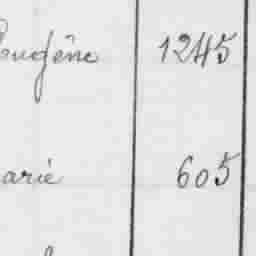 Eugène 1245
arie 605